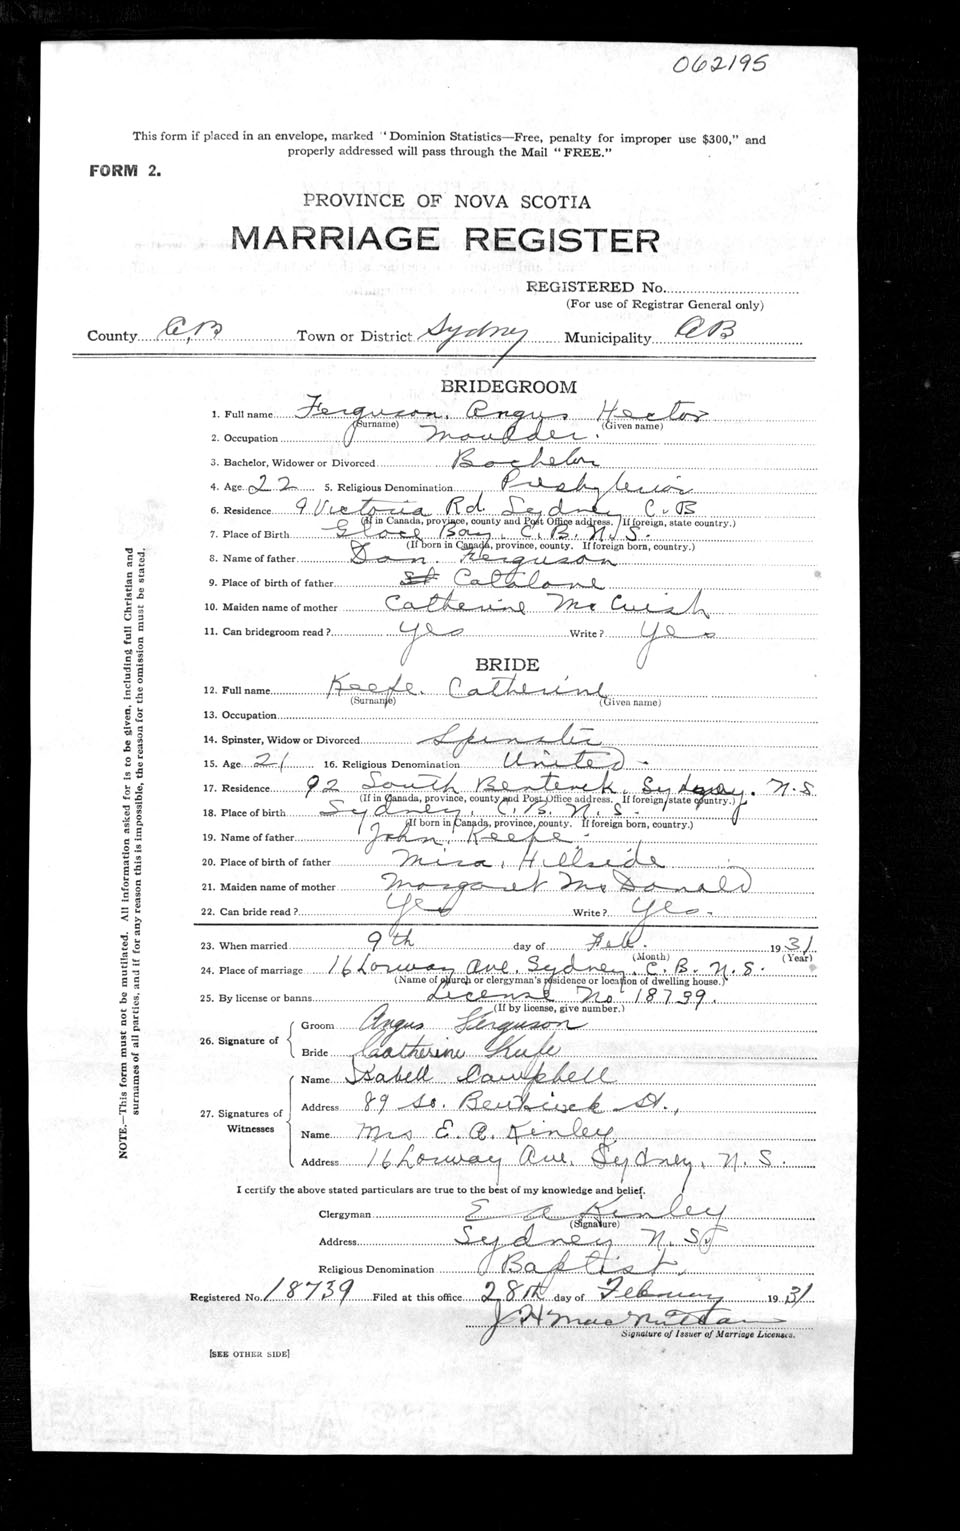 062195
This form if placed in an envelope, marked "Dominion Statistics—Free, penalty for improper use $300," and
properly addressed will pass through the Mail "FREE."
FORM 2.
PROVINCE OF NOVA SCOTIA
MARRIAGE REGISTER
REGISTERED No.
(For use of Registrar General only)
County C,B Town or District Sydney Municipality CB
BRIDEGROOM
1. Full name Ferguson, Angus Hector
(Surname) (Given name)
2. Occupation Moulder.
3. Bachelor, Widower or Divorced Bachelor
4. Age 22 5. Religious Denomination Presbyterian
6. Residence 9 Victoria Rd. Sydney C.B
(If in Canada, province, county and Post Office address. If foreign, state country.)
7. Place of Birth Glace Bay, C.B. N.S.
(If born in Canada, province, county. If foreign born, country.)
8. Name of father Dan. Ferguson
9. Place of birth of father Catalone
10. Maiden name of mother Catherine McCuish
11. Can bridegroom read? yes Write? yes
BRIDE
12. Full name Keefe. Catherine
(Surname) (Given name)
13. Occupation
14. Spinster, Widow or Divorced Spinster
15. Age 21 16. Religious Denomination United
17. Residence 92 South Bentinck, Sydney. N.S.
(If in Canada, province, county and Post Office address. If foreign state country.)
18. Place of birth Sydney, C.B. N.S.
(If born in Canada, province, county. If foreign born, country.)
19. Name of father John, Keefe
20. Place of birth of father Mira, Hillside
21. Maiden name of mother Margaret McDonald
22. Can bride read? Yes Write? Yes.
23. When married 9th day of Feb. 1931
(Month) (Year)
24. Place of marriage 16 Lorway Ave. Sydney, C.B. N.S.
(Name of church or clergyman's residence or location of dwelling house.)
25. By license or banns License No 18739.
(If by license, give number.)
26. Signature of
Groom Angus Ferguson
Bride Catherine Keefe
27. Signatures of Witnesses
Name Isabell Campbell
Address 89 So. Bentinck St.,
Name Mrs E. A. Kinley
Address 16 Lorway Ave. Sydney, N.S.
I certify the above stated particulars are true to the best of my knowledge and belief.
Clergyman E A Kinley
(Signature)
Address Sydney N.S.
Religious Denomination Baptist,
Registered No. 18739 Filed at this office 28th day of February 1931
Signature of Issuer of Marriage Licenses.
[SEE OTHER SIDE]
NOTE.—This form must not be mutilated. All information asked for is to be given, including full Christian and
surnames of all parties, and if for any reason this is impossible, the reason for the omission must be stated.